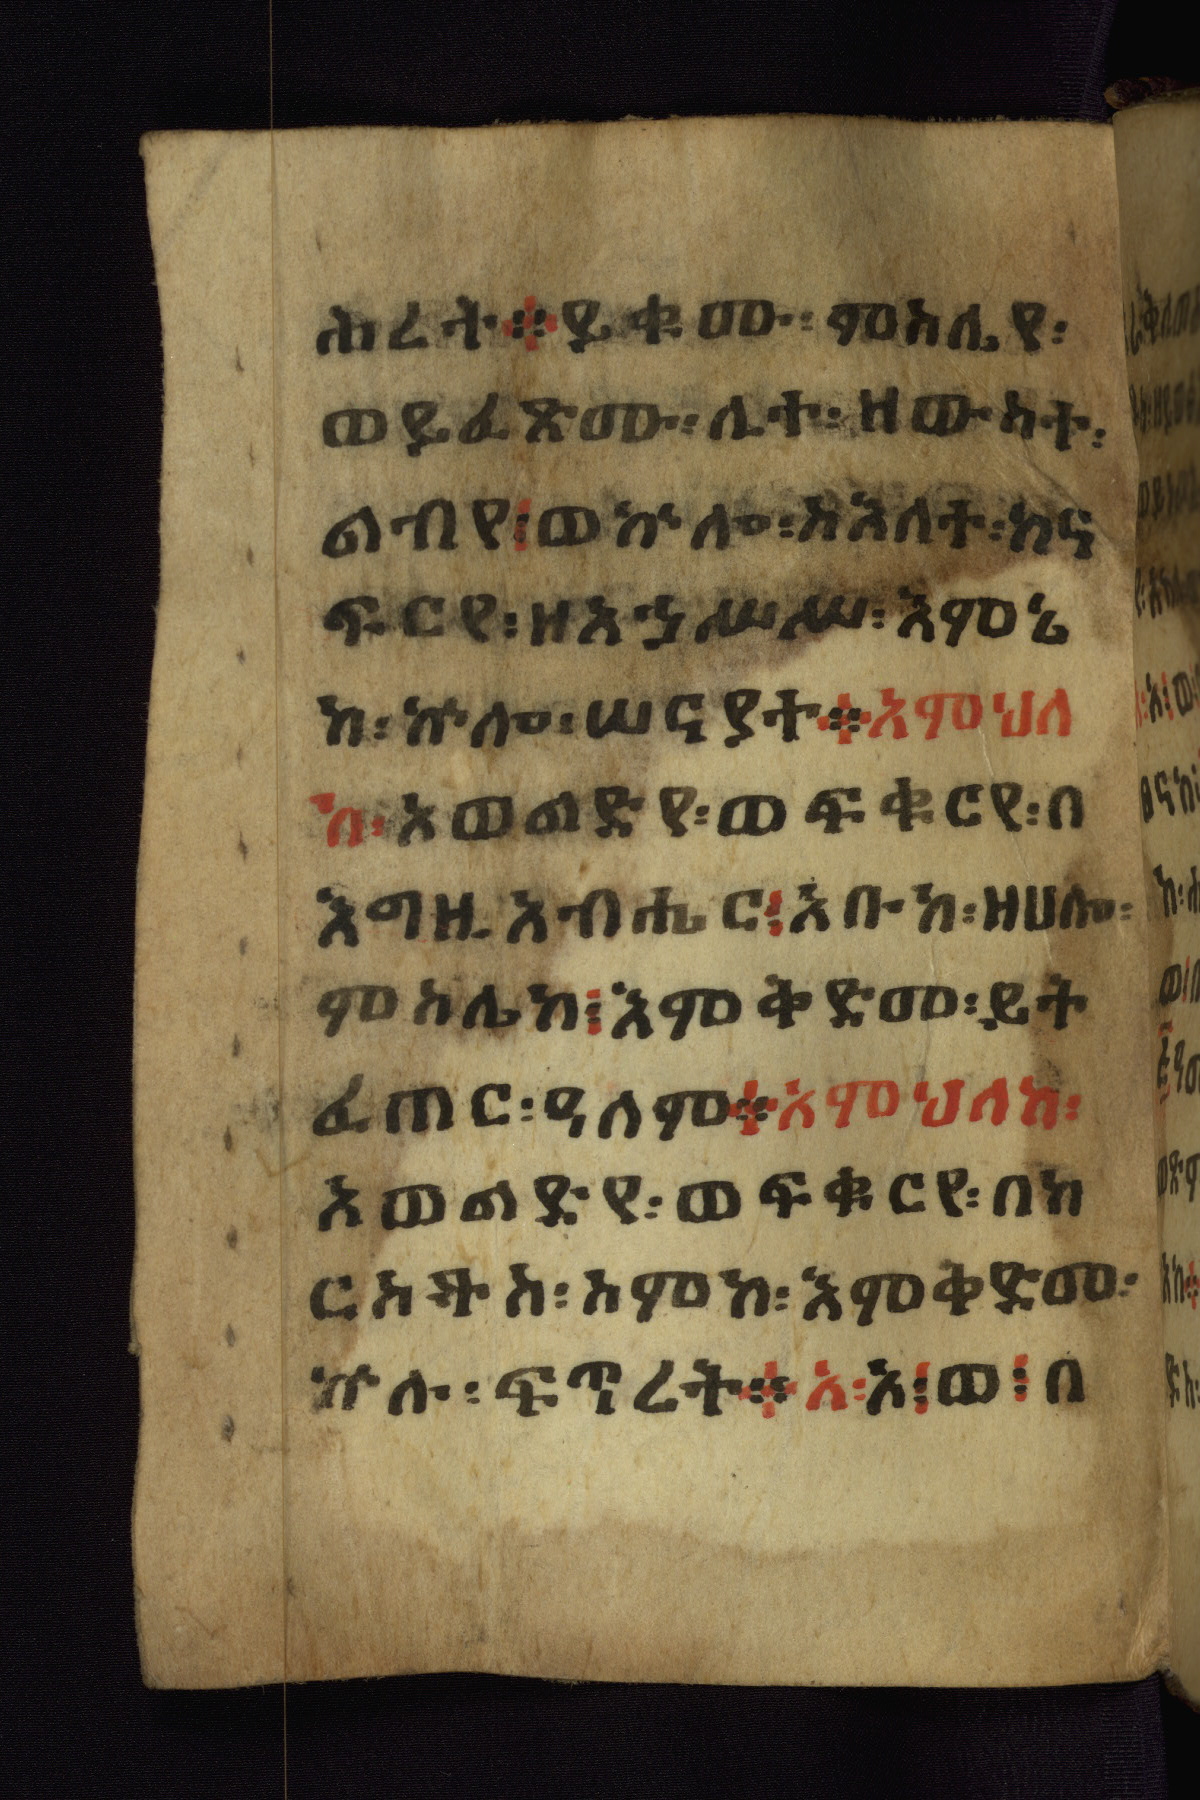 ሕረት፨ይቁሙ፡ምስሌየ፡
ወይፈጽሙ፡ሊተ፡ዘውስተ፡
ልብየ፤ወኵሎ፡ስእለተ፡ከና
ፍርየ፡ዘአኃሥሥ፡እምኔ
ከ፡ኵሎ፡ሠናያተ፨አምህለ
ከ፡አወልድየ፡ወፍቁርየ፡በ
እግዚአብሔር፤አቡከ፡ዘሀሎ፡
ምስሌከ፤እምቅድመ፡ይት
ፈጠር፡ዓለም፨አምህለከ፡
አወልድየ፡ወፍቁርየ፡በክ
ርስቶስ፡ስምከ፡እምቅድመ፡
ኵሉ፡ፍጥረት፨አ፡አ፤ወ፤በ